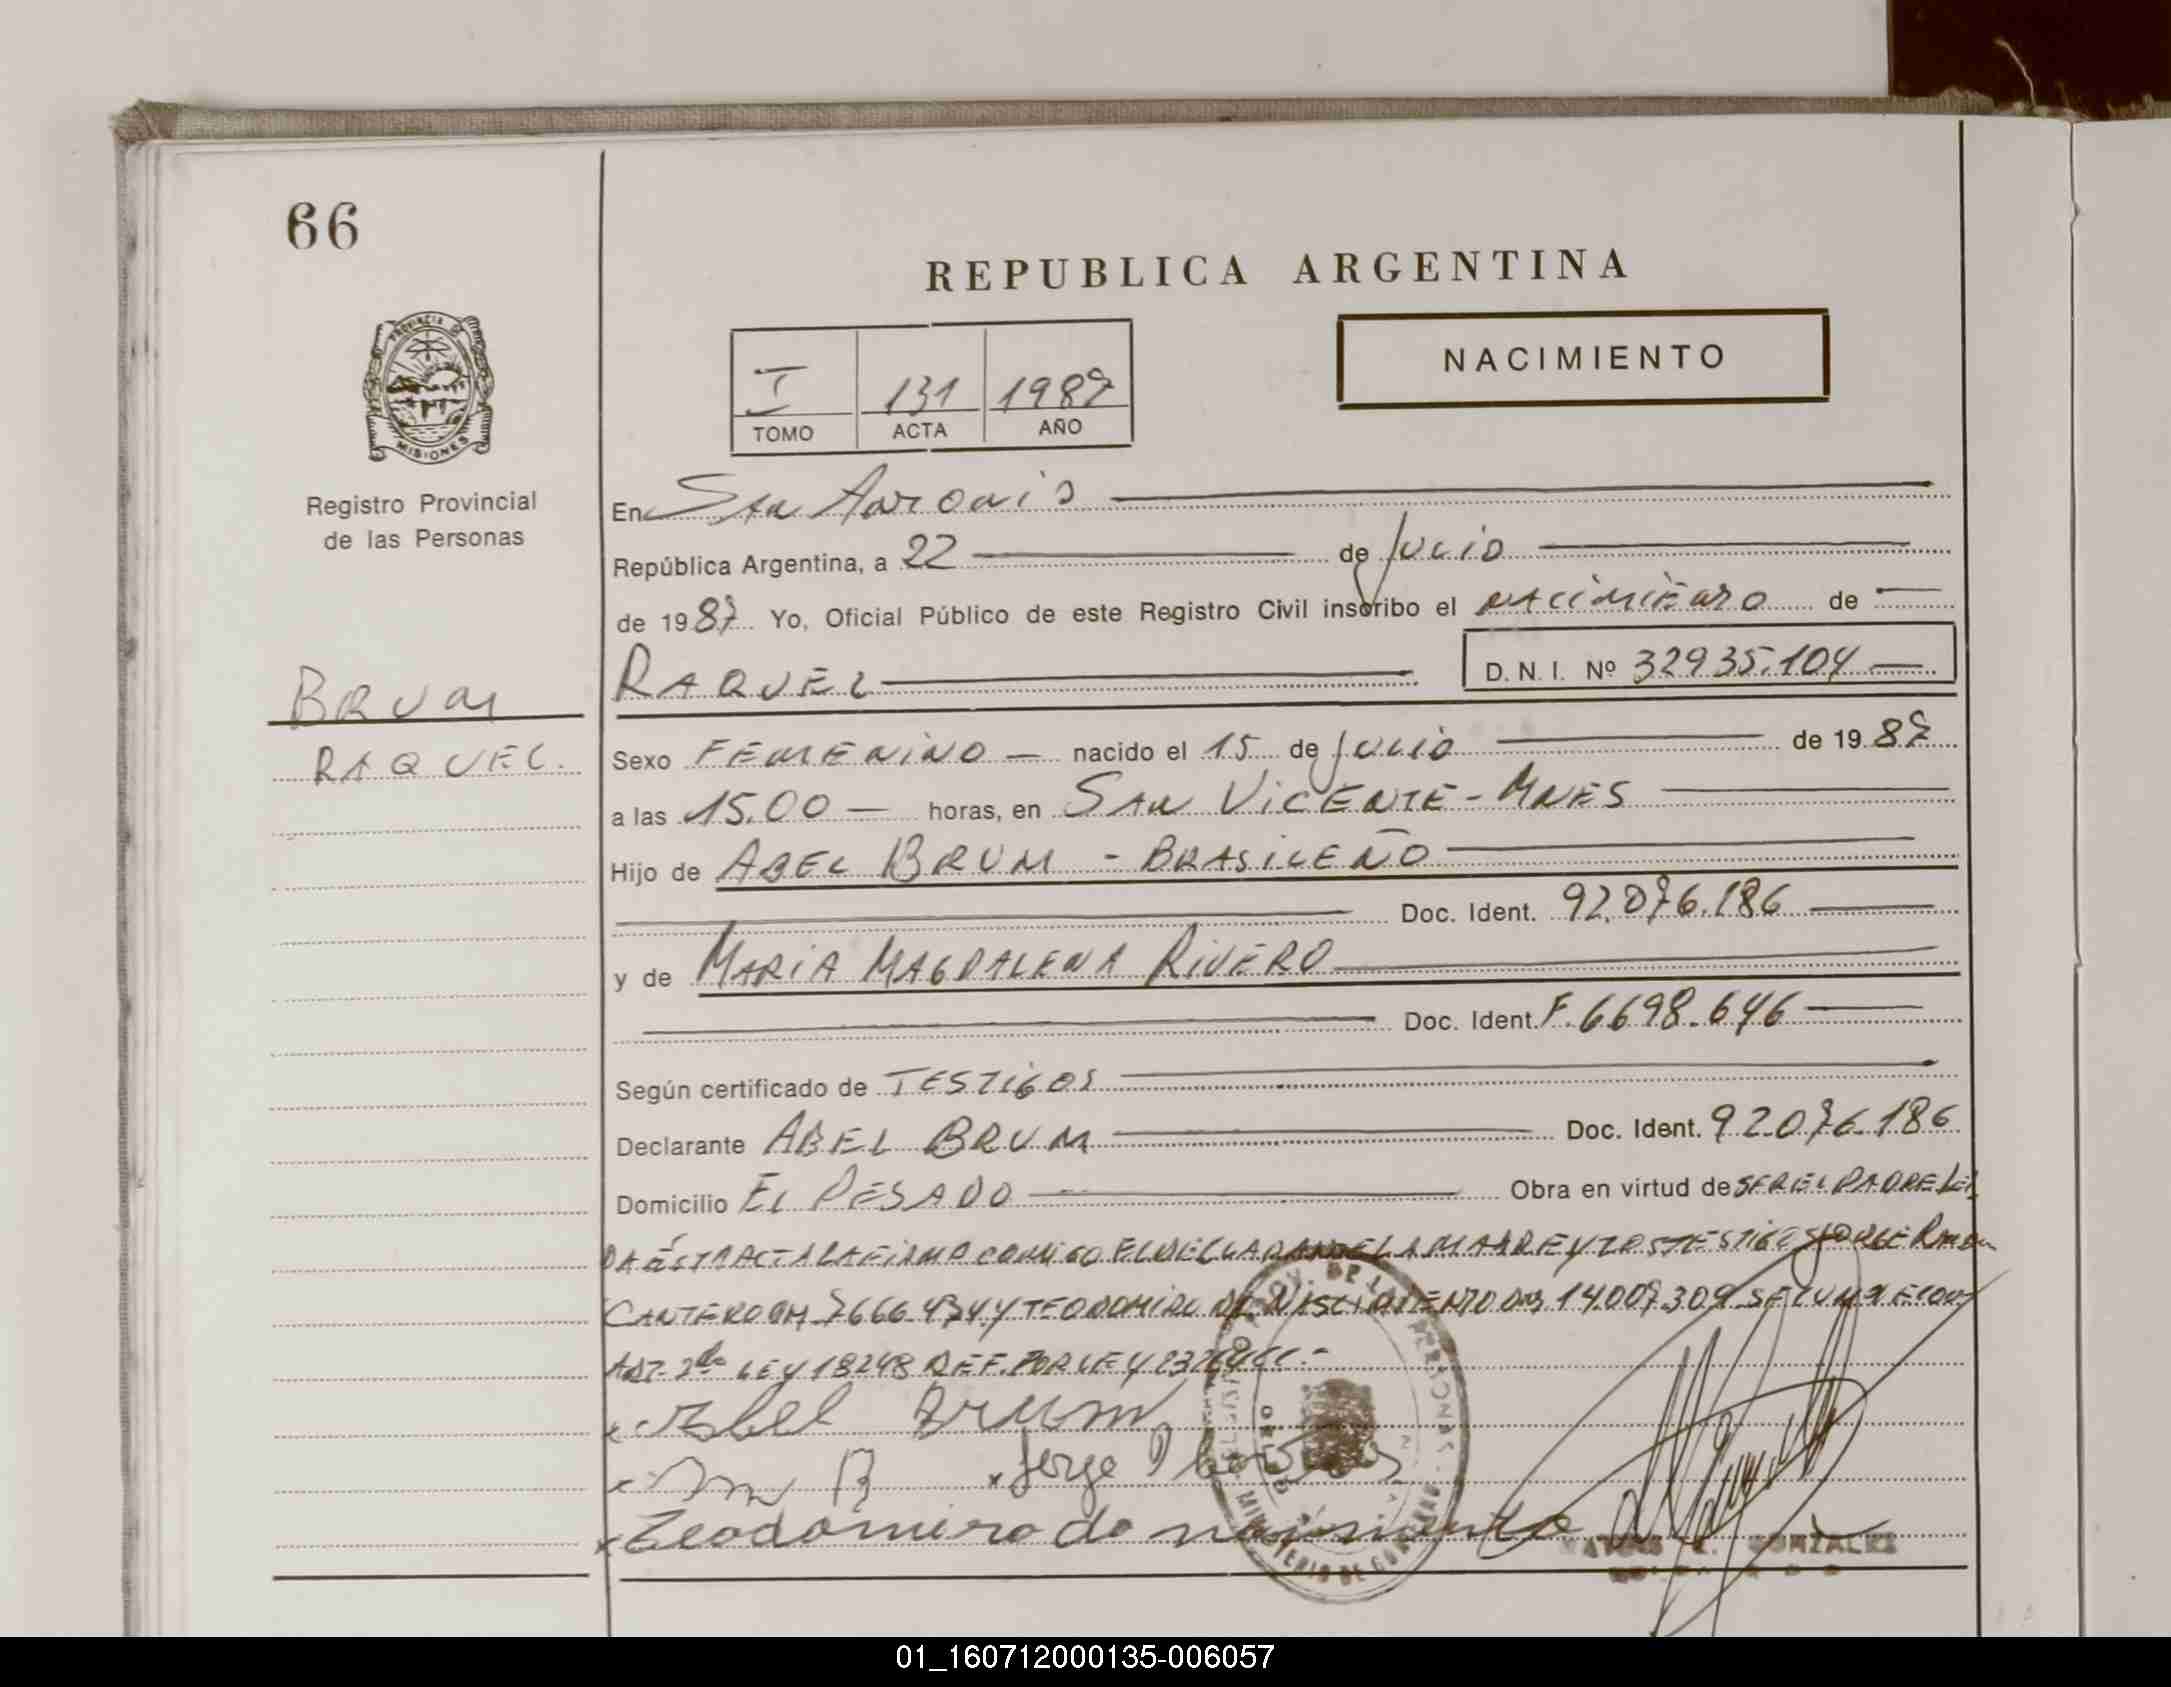 66
REPUBLICA ARGENTINA
NACIMIENTO
I 131 1987
TOMO ACTA AÑO
PROVINCIA DE
MISIONES
Registro Provincial
de las Personas
BRUM
RAQUEL.
En San Antonio
República Argentina, a 22 de Julio
de 1987 Yo, Oficial Público de este Registro Civil inscribo el NACIMIENTO de
RAQUEL D. N. I. Nº 32935.104
Sexo FEMENINO nacido el 15 de Julio de 1987
a las 15.00 horas, en SAN VICENTE - MNES
Hijo de ABEL BRUM - BRASILEÑO
Doc. Ident. 92.076.186
y de MARIA MAGDALENA RIVERO
Doc. Ident. F. 6698.646
Según certificado de TESTIGOS
Declarante ABEL BRUM Doc. Ident. 92.076.186
Domicilio EL PESADO Obra en virtud de SER EL PADRE LEI
DA ÉSTA ACTA LA FIRMA CONMIGO EL DECLARANTE LA MADRE Y LOS TESTIGOS JORGE RAMON
CANTERO 7666.434 Y TEODOMIRO DO NASCIMENTO 14.007.309 SEGUN
ART. 2do LEY 18248 REF. POR LEY
x Abel Brum
x x Jorge
x Teodomiro do
GONZALEZ
01_160712000135-006057